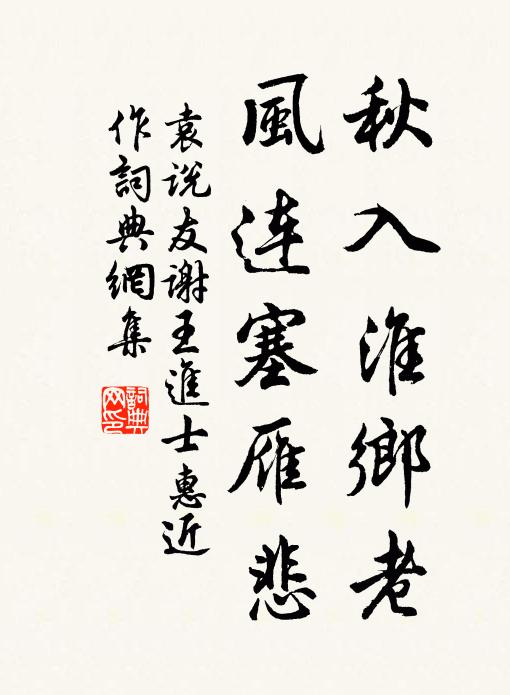 秋入淮鄉老
風連塞雁悲
袁説友謝王進士惠近
作詞典網集
詞典網印